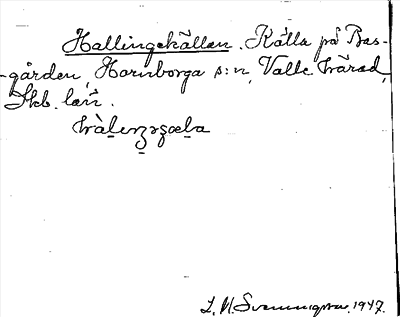 Hallingekällan. Källa på Bas-
-gården, Hornborga s:n, Valle härad,
Skb. län.
L. M. Svenungsson. 1947.